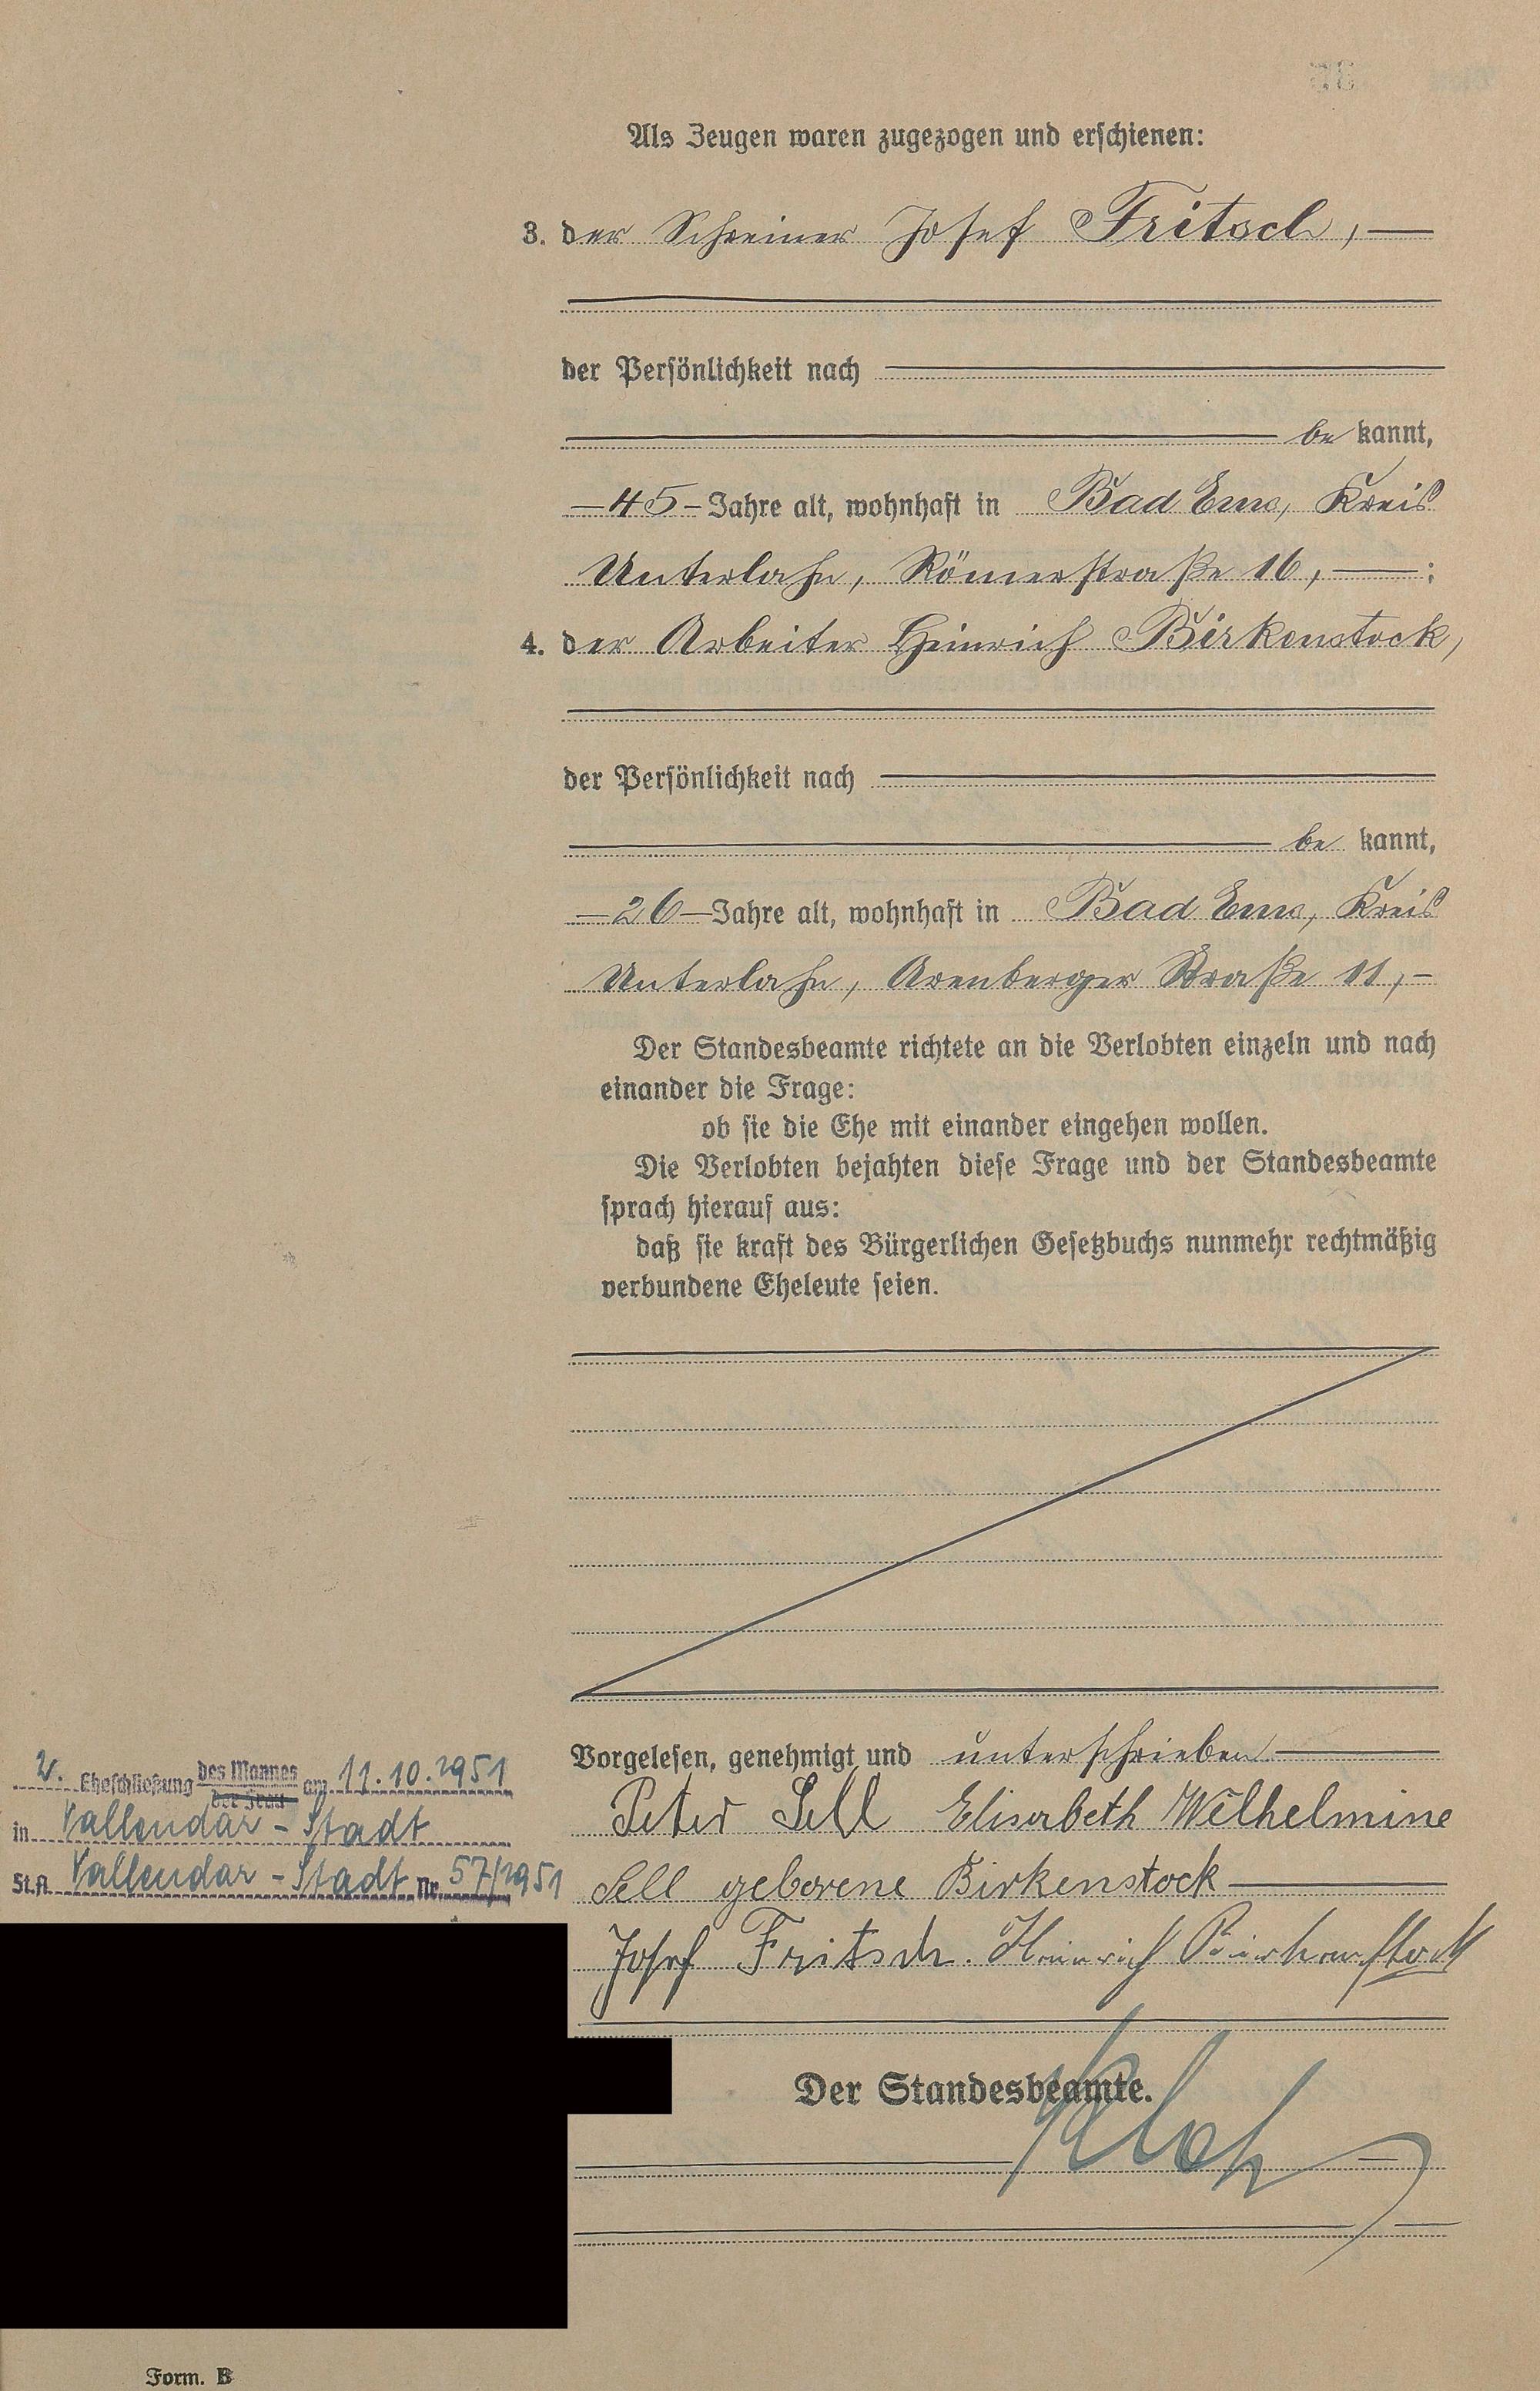 Als Zeugen waren zugezogen und erschienen:
3. der Schreiner Josef Fritsch, —
der Persönlichkeit nach
be kannt,
— 45 — Jahre alt, wohnhaft in Bad Ems, Kreis
Unterlahn, Römerstraße 16, — ;
4. der Arbeiter Heinrich Birkenstock,
der Persönlichkeit nach
be kannt,
— 26 — Jahre alt, wohnhaft in Bad Ems, Kreis
Unterlahn, Arenberger Straße 11, —
Der Standesbeamte richtete an die Verlobten einzeln und nach
einander die Frage:
ob sie die Ehe mit einander eingehen wollen.
Die Verlobten bejahten diese Frage und der Standesbeamte
sprach hierauf aus:
daß sie kraft des Bürgerlichen Gesetzbuchs nunmehr rechtmäßig
verbundene Eheleute seien.
Vorgelesen, genehmigt und unterschrieben
Peter Sell Elisabeth Wilhelmine
Sell geborene Birkenstock
Josef Fritsch. Heinrich Birkenstock
Der Standesbeamte.
2. Eheschließung des Mannes der Frau am 11.10.1951
in Vallendar - Stadt
St.A. Vallendar - Stadt Nr. 57/1951
Form. B